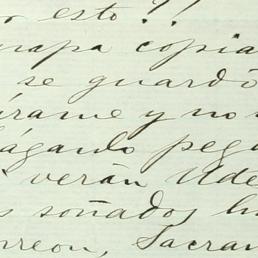 r esto?!!
guapa copia
se guardó
írame y no
ágando pega
verán Ude
s soñados
rreon, Sacram